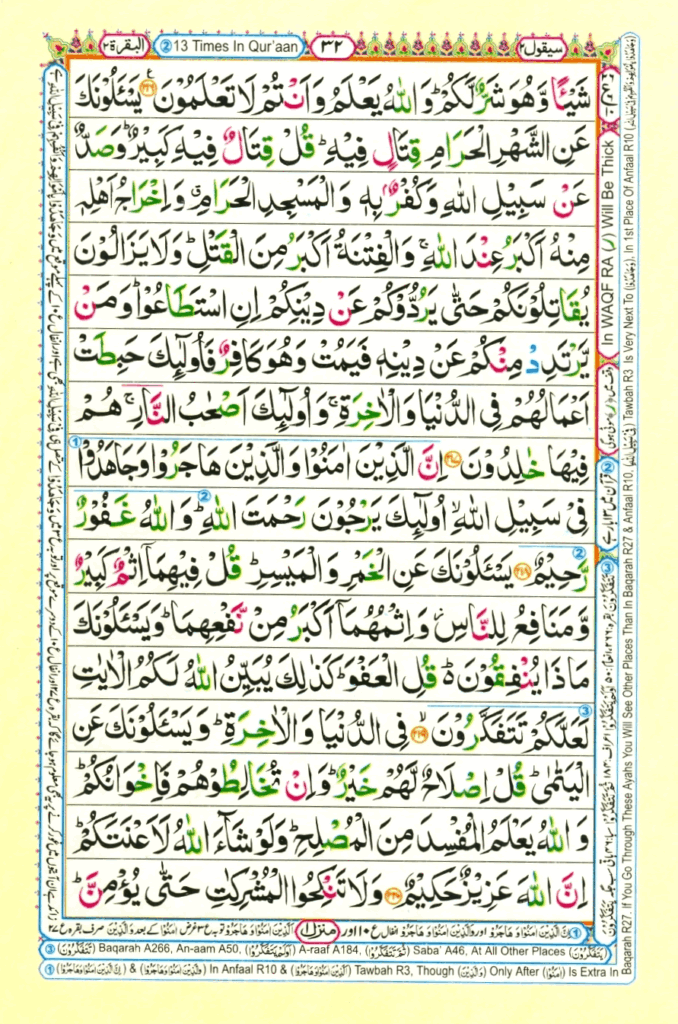 سيقول ٢
٣٢
② 13 Times In Qur'aan
البقرة ٢
شَيْـًٔا وَّهُوَ شَرٌّ لَّكُمْ ؕ وَاللّٰهُ يَعْلَمُ وَاَنْتُمْ لَا تَعْلَمُوْنَ ﴿۲۱۶﴾ يَسْـَٔلُوْنَكَ
عَنِ الشَّهْرِ الْحَرَامِ قِتَالٍ فِيْهِ ؕ قُلْ قِتَالٌ فِيْهِ كَبِيْرٌ ؕ وَصَدٌّ
عَنْ سَبِيْلِ اللّٰهِ وَكُفْرٌۢ بِهٖ وَالْمَسْجِدِ الْحَرَامِ ۗ وَاِخْرَاجُ اَهْلِهٖ
مِنْهُ اَكْبَرُ عِنْدَ اللّٰهِ ۚ وَالْفِتْنَةُ اَكْبَرُ مِنَ الْقَتْلِ ؕ وَلَا يَزَالُوْنَ
يُقَاتِلُوْنَكُمْ حَتّٰى يَرُدُّوْكُمْ عَنْ دِيْنِكُمْ اِنِ اسْتَطَاعُوْا ؕ وَمَنْ
يَّرْتَدِدْ مِنْكُمْ عَنْ دِيْنِهٖ فَيَمُتْ وَهُوَ كَافِرٌ فَاُولٰٓئِكَ حَبِطَتْ
اَعْمَالُهُمْ فِى الدُّنْيَا وَالْاٰخِرَةِ ۚ وَاُولٰٓئِكَ اَصْحٰبُ النَّارِ ۚ هُمْ
فِيْهَا خٰلِدُوْنَ ﴿۲۱۷﴾ اِنَّ الَّذِيْنَ اٰمَنُوْا وَالَّذِيْنَ هَاجَرُوْا وَجَاهَدُوْا ①
فِىْ سَبِيْلِ اللّٰهِ ۙ اُولٰٓئِكَ يَرْجُوْنَ رَحْمَتَ اللّٰهِ ؕ ② وَاللّٰهُ غَفُوْرٌ
رَّحِيْمٌ ② ﴿۲۱۸﴾ يَسْـَٔلُوْنَكَ عَنِ الْخَمْرِ وَالْمَيْسِرِ ؕ قُلْ فِيْهِمَاۤ اِثْمٌ كَبِيْرٌ
وَّمَنَافِعُ لِلنَّاسِ ؗ وَاِثْمُهُمَاۤ اَكْبَرُ مِنْ نَّفْعِهِمَا ؕ وَيَسْـَٔلُوْنَكَ
مَاذَا يُنْفِقُوْنَ ؕ قُلِ الْعَفْوَ ؕ كَذٰلِكَ يُبَيِّنُ اللّٰهُ لَكُمُ الْاٰيٰتِ
لَعَلَّكُمْ تَتَفَكَّرُوْنَ ③ ﴿۲۱۹﴾ ۙ فِى الدُّنْيَا وَالْاٰخِرَةِ ؕ وَيَسْـَٔلُوْنَكَ عَنِ
الْيَتٰمٰى ؕ قُلْ اِصْلَاحٌ لَّهُمْ خَيْرٌ ؕ وَاِنْ تُخَالِطُوْهُمْ فَاِخْوَانُكُمْ ؕ
وَاللّٰهُ يَعْلَمُ الْمُفْسِدَ مِنَ الْمُصْلِحِ ؕ وَلَوْ شَآءَ اللّٰهُ لَاَعْنَتَكُمْ ؕ
اِنَّ اللّٰهَ عَزِيْزٌ حَكِيْمٌ ﴿۲۲۰﴾ وَلَا تَنْكِحُوا الْمُشْرِكٰتِ حَتّٰى يُؤْمِنَّ ؕ
منزل ١
③ (تَتَفَكَّرُوْنَ) Baqarah A266, An-aam A50, (اَوَلَمْ يَتَفَكَّرُوْا) A-raaf A184, (ثُمَّ تَتَفَكَّرُوْا) Saba' A46, At All Other Places (يَتَفَكَّرُوْنَ)
① (اِنَّ الَّذِيْنَ اٰمَنُوْا وَهَاجَرُوْا) & (وَالَّذِيْنَ اٰمَنُوْا وَهَاجَرُوْا) In Anfaal R10 & (اَلَّذِيْنَ اٰمَنُوْا وَهَاجَرُوْا) Tawbah R3, Though (وَالَّذِيْنَ) Only After (اٰمَنُوْا) Is Extra In
Baqarah R27. If You Go Through These Ayahs You Will See Other Places Than In Baqarah R27 & Anfaal R10, (فِيْ سَبِيْلِ اللّٰهِ) Tawbah R3 Is Very Next To (وَجَاهَدُوْا), In 1st Place Of Anfaal R10
In WAQF RA (ر) Will Be Thick